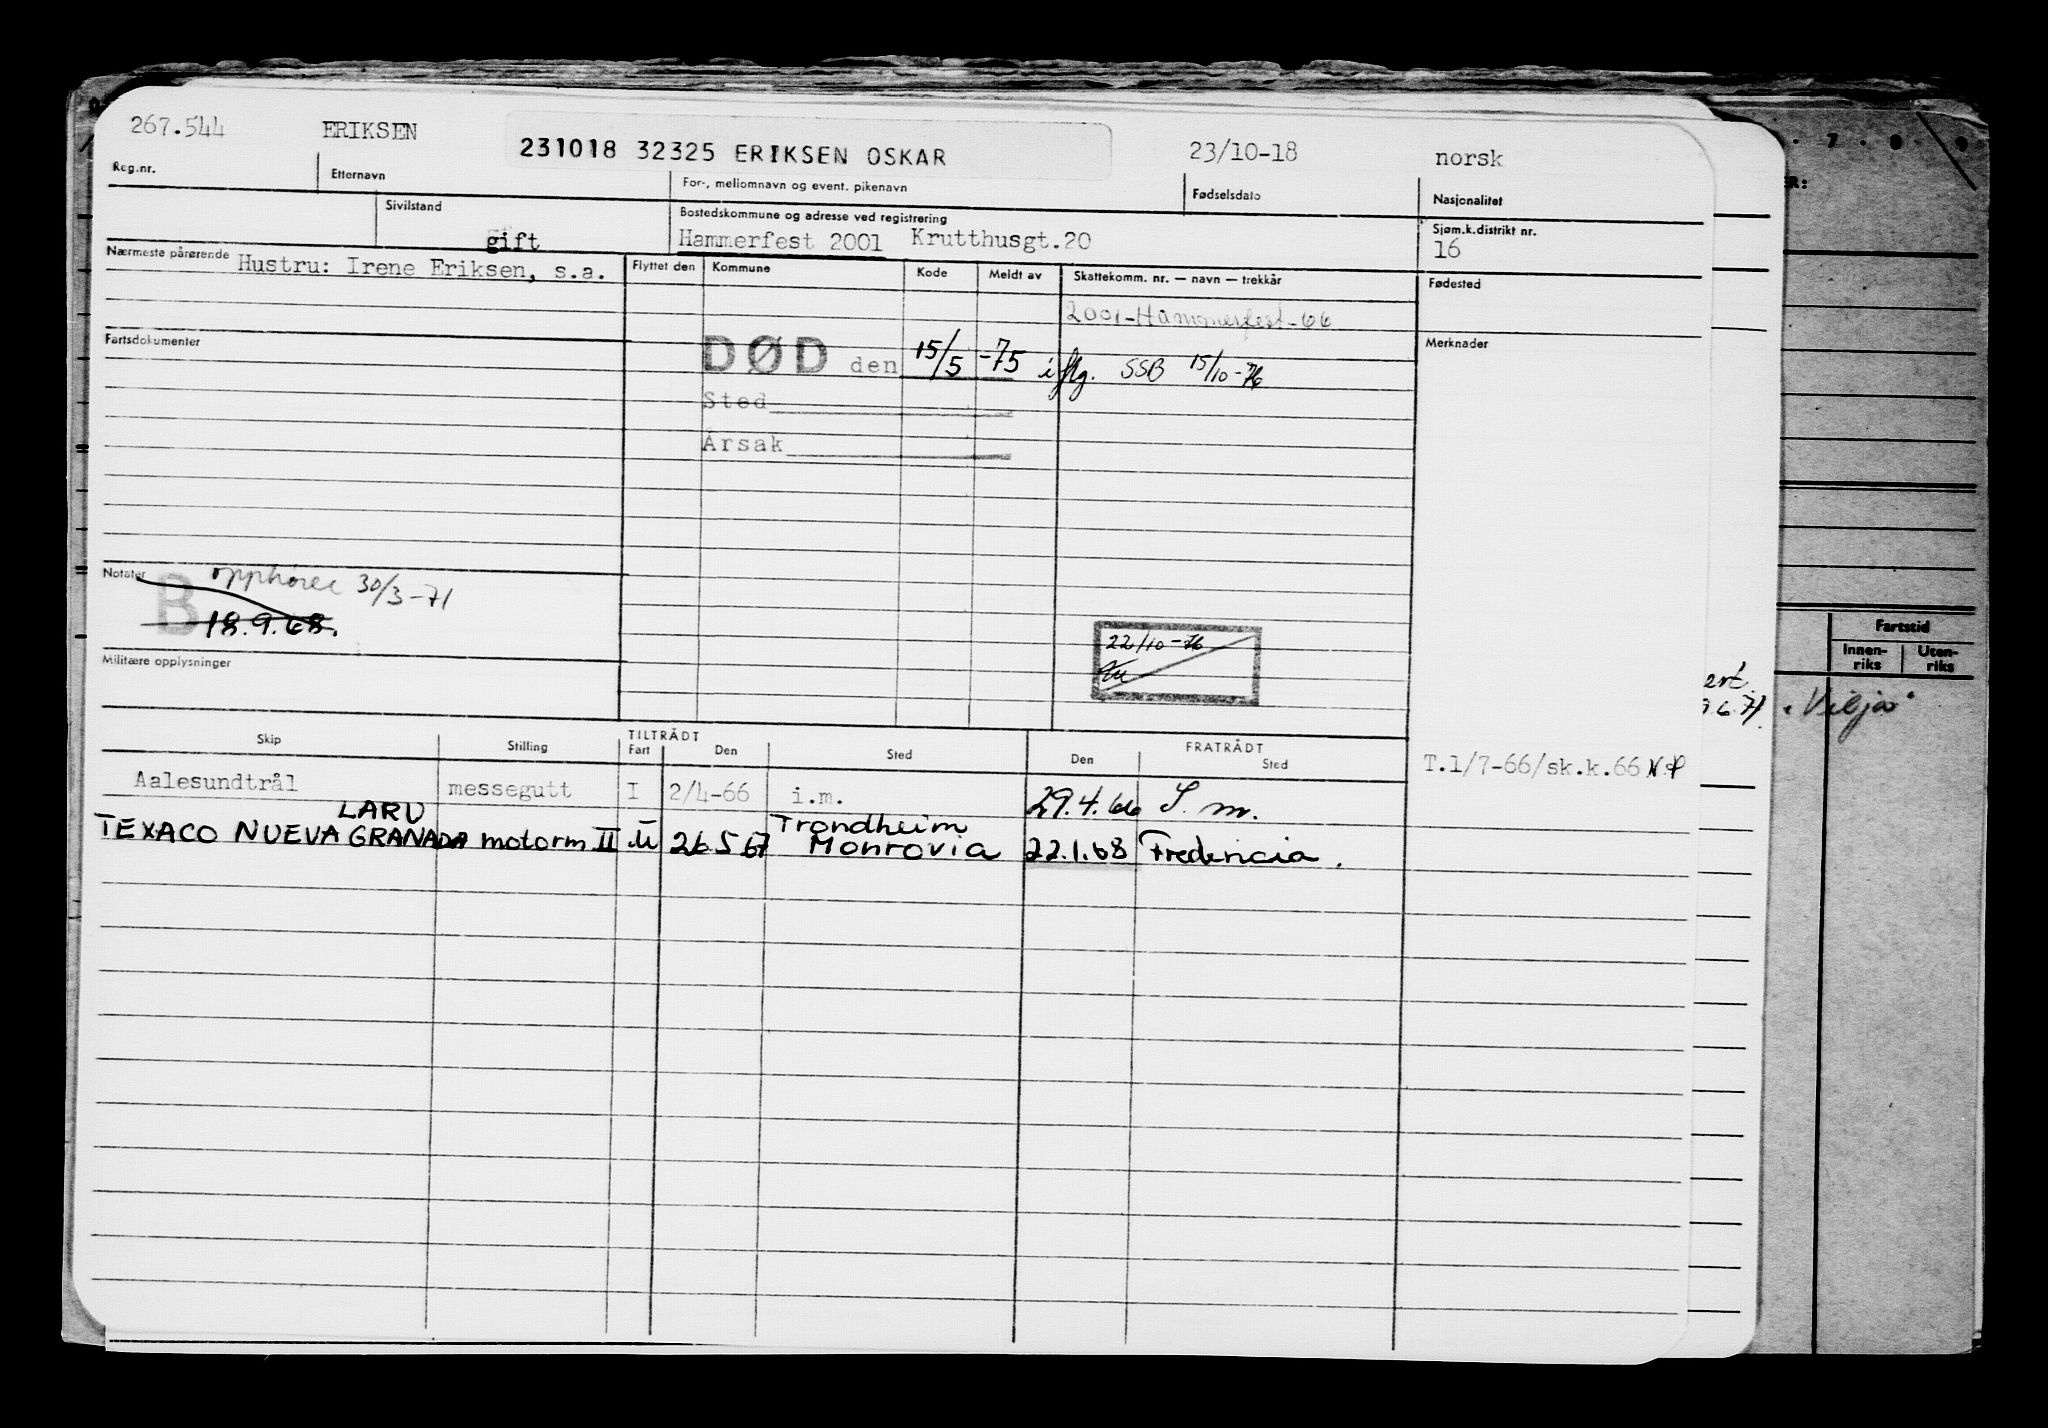 267.544 ERIKSEN 231018 32325 ERIKSEN OSKAR 23/10-18 norsk
Reg.nr. Etternavn For-, mellomnavn og event. pikenavn Fødselsdato Nasjonalitet
Sivilstand Bostedskommune og adresse ved registrering Sjøm.k.distrikt nr.
gift Hammerfest 2001 Krutthusgt.20 16
Nærmeste pårørende Hustru: Irene Eriksen, s.a. Flyttet den Kommune Kode Meldt av Skattekomm. nr. — navn — trekkår Fødested
2001-Hammerfest-66
Fartsdokumenter Merknader
DØD den 15/5 -75 iflg. SSB 15/10-76
Sted
Årsak
Notater B opphører 30/3-71
18.9.68.
22/10-76
Militære opplysninger
6.71. "Vilja"
Fartstid
Innen-riks Uten-riks
Skip Stilling TILTRÅDT Fart Den Sted FRATRÅDT Den Sted
T.1/7-66/sk.k.66
Aalesundtrål messegutt I 2/4-66 i.m. 29.4.66 S.m.
LARV Trondheim
TEXACO NUEVA GRANADA motorm II U 26 5 67 Monrovia 22.1.68 Fredericia.
7 8 9